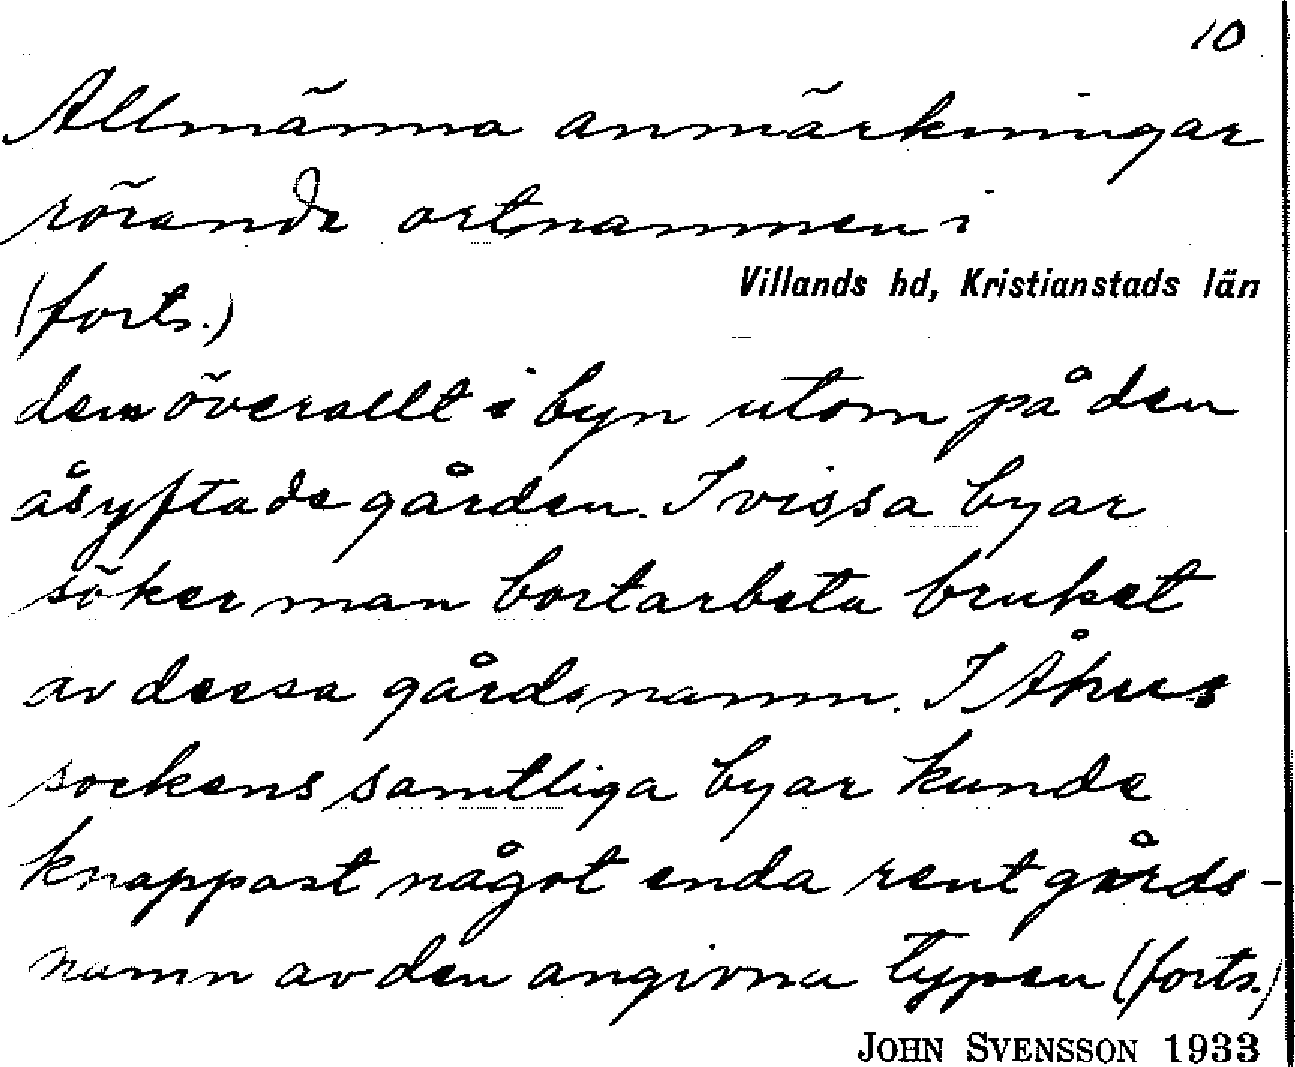 10
Allmänna anmärkningar
rörande ortnamnen i
Villands hd, Kristianstads län
(forts.)
dem överallt i byn utom på den
åsyftade gården. I vissa byar
söker man bortarbeta bruket
av dessa gårdsnamn. I Åhus
sockens samtliga byar kunde
knappast något enda rent gårds-
namn av den angivna typen (forts.)
JOHN SVENSSON 1933